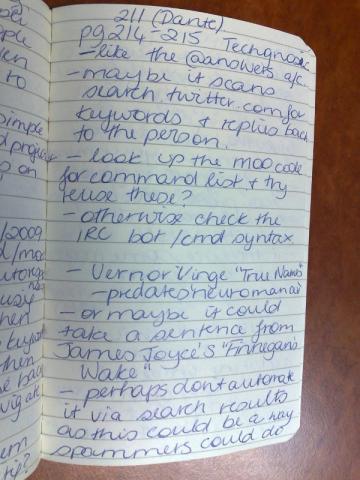 211 (Dante)
pg 214-215 Techgnosis
- like the @answers a/c.
- maybe it scans
search.twitter.com for
keywords + replies back
to the person.
- look up the moo code
for command list + try
reuse these?
- otherwise check the
IRC bot/cmd syntax
- Vernor Vinge "True Names"
- predates neuromancer
- or maybe it could
take a sentence from
James Joyce's "Finnegans
Wake"
- perhaps dont automate
it via search results
as this could be a way
spammers could do